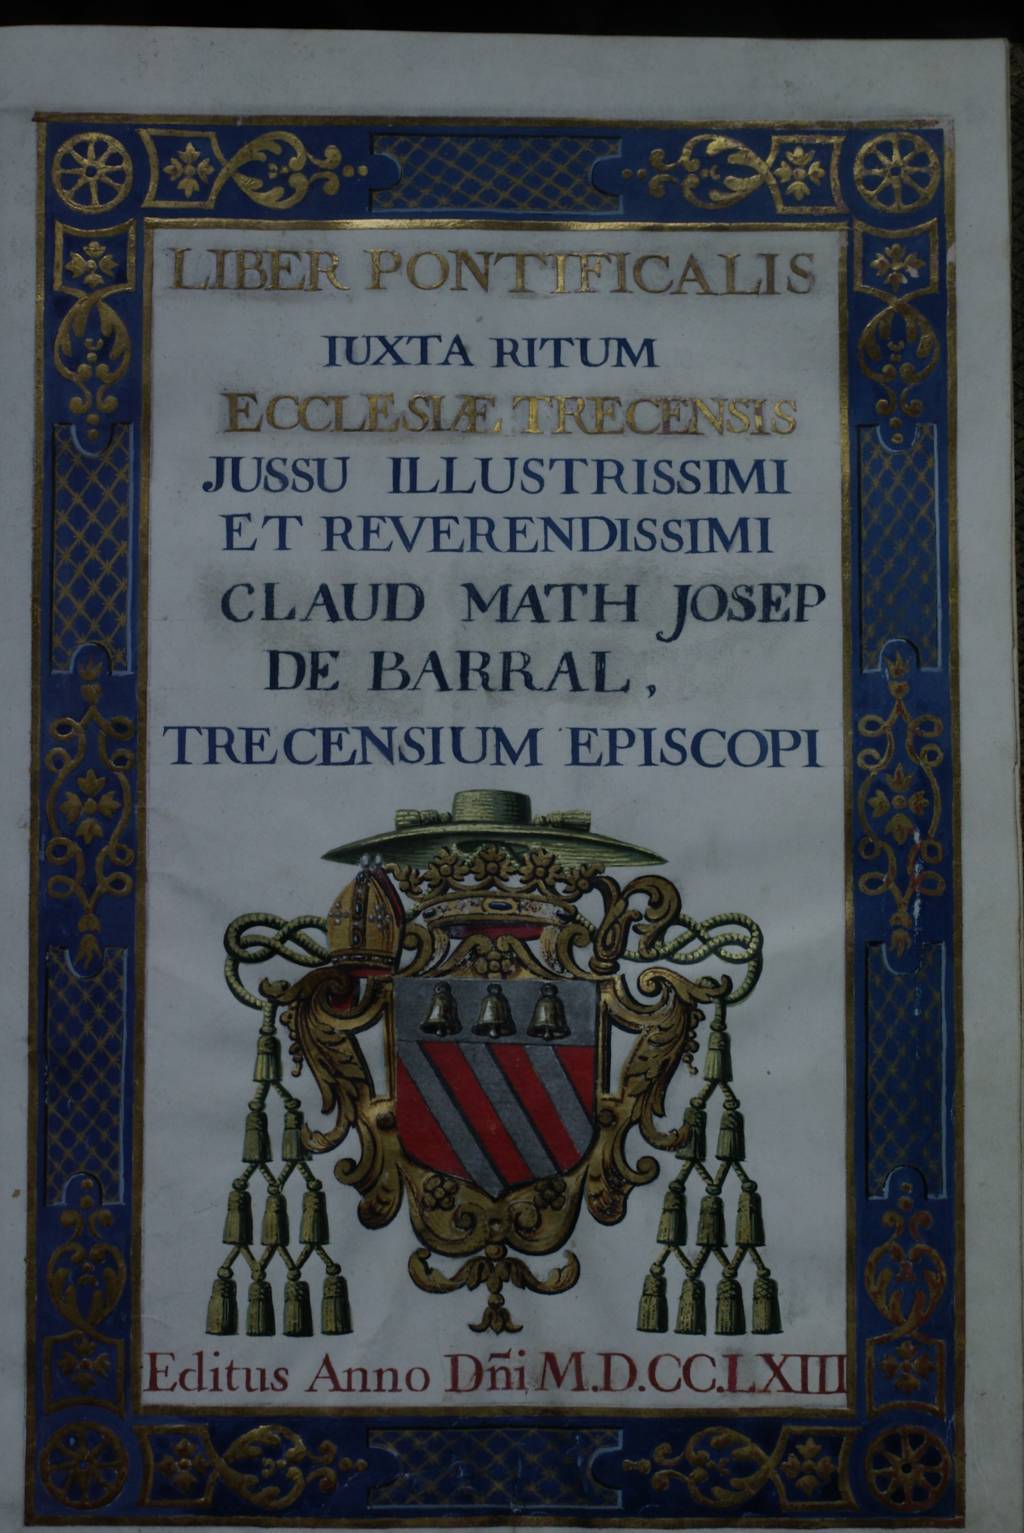 LIBER PONTIFICALIS
IUXTA RITUM
ECCLESIÆ TRECENSIS
JUSSU ILLUSTRISSIMI
ET REVERENDISSIMI
CLAUD MATH JOSEP
DE BARRAL,
TRECENSIUM EPISCOPI
Editus Anno Dñi M.D.CC.LXIII